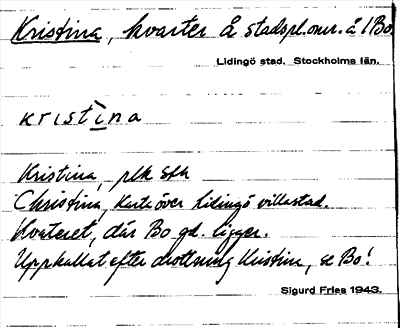 Kristina, kvarter å stadspl.omr. å 1 Bo
Lidingö stad, Stockholms län.
kristina
Kristina, plk Sth
Christina, Karta över Lidingö villastad.
Kvateret, där Bo gd. ligger.
Uppkallat efter drottning Kristin, se Bo!
Sigurd Fries 1943.